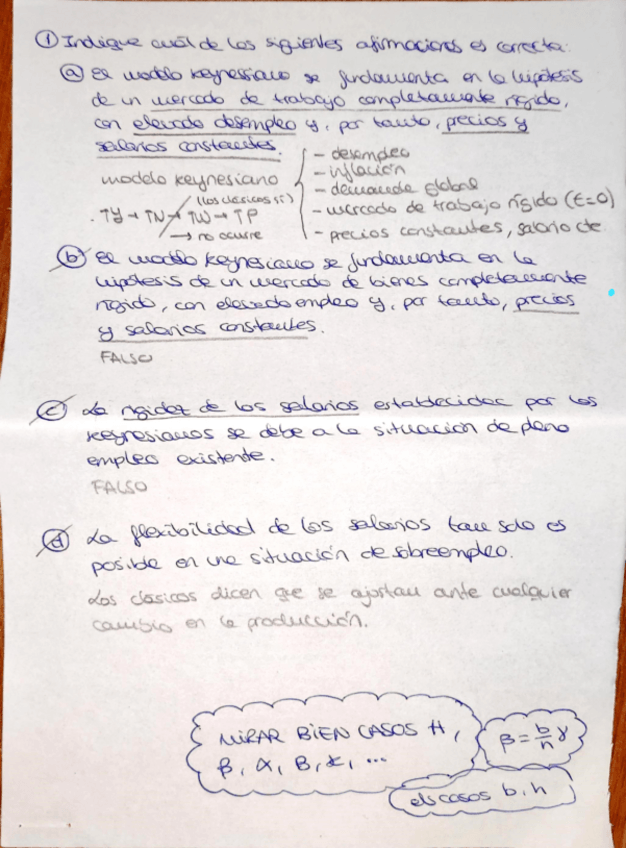 ① Indique cuál de las siguientes afirmaciones es correcta:
ⓐ El modelo keynesiano se fundamenta en la hipótesis
de un mercado de trabajo completamente rígido,
con elevado desempleo y, por tanto, precios y
salarios constantes.
modelo keynesiano
- desempleo
- inflación
- demanda global
- mercado de trabajo rígido (ε=0)
- precios constantes, salario cte
(los clásicos sí)
. ↑Y → ↑N → ↑W → ↑P
→ no ocurre
ⓑ El modelo keynesiano se fundamenta en la
hipótesis de un mercado de bienes completamente
rígido, con elevado empleo y, por tanto, precios
y salarios constantes.
FALSO
ⓒ La rigidez de los salarios establecidos por los
keynesianos se debe a la situación de pleno
empleo existente.
FALSO
ⓓ La flexibilidad de los salarios tan solo es
posible en una situación de sobreempleo.
Los clásicos dicen que se ajustan ante cualquier
cambio en la producción.
MIRAR BIEN CASOS H,
β, α, B, ...
β = b/h γ
els casos b, h